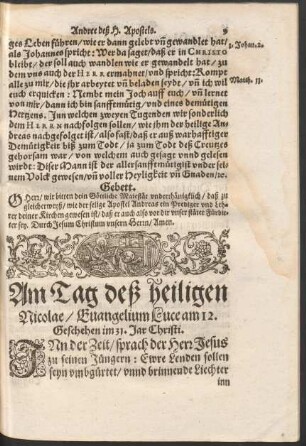 Andree deß H. Apostels. 9
ges Leben führen/ wie er dann gelebt vñ gewandlet hat/
als Johannes spricht: Wer da saget/ daß er in CHRISTO 1. Johan. 2.
bleibt/ der soll auch wandlen wie er gewandelt hat/ zu
dem vns auch der HERR ermahnet/ vnd spricht: Kompt
alle zu mir/ die jhr arbeytet vñ beladen seydt/ vñ ich wil Matth. 11.
euch erquicken: Nembt mein Joch auff euch/ vñ lernet
von mir/ dann ich bin sanfftmütig/ vnd eines demütigen
Hertzens. Inn welchen zweyen Tugenden wir sonderlich
dem HERRN nachfolgen sollen/ wie jhm der heilige An-
dreas nachgefolget ist/ also fast/ daß er auß warhafftiger
Demütigkeit biß zum Todt/ ja zum Todt deß Creutzes
gehorsam war/ von welchem auch gesagt vnnd gelesen
wirdt: Diser Mann ist der allersanfftmütigist vnder sei-
nem Volck gewesen/ vñ voller Heyligkeit vñ Gnaden/ ec.
Gebett.
O Herr/ wir bitten dein Göttliche Maiestät vnderthänigklich/ daß zu
gleicherweiß/ wie der selige Apostel Andreas ein Prediger vnd Leh-
rer deiner Kirchen gewesen ist/ daß er auch also vor dir vnser stäter Fürbit-
ter sey. Durch Jesum Christum vnsern Herrn/ Amen.
Am Tag deß heiligen
Nicolae/ Euangelium Luce am 12.
Geschehen im 31. Jar Christi.
INn der Zeit/ sprach der Herr Jesus
zu seinen Jüngern: Ewre Lenden sollen
seyn vmbgürtet/ vnnd brinnende Liechter
inn